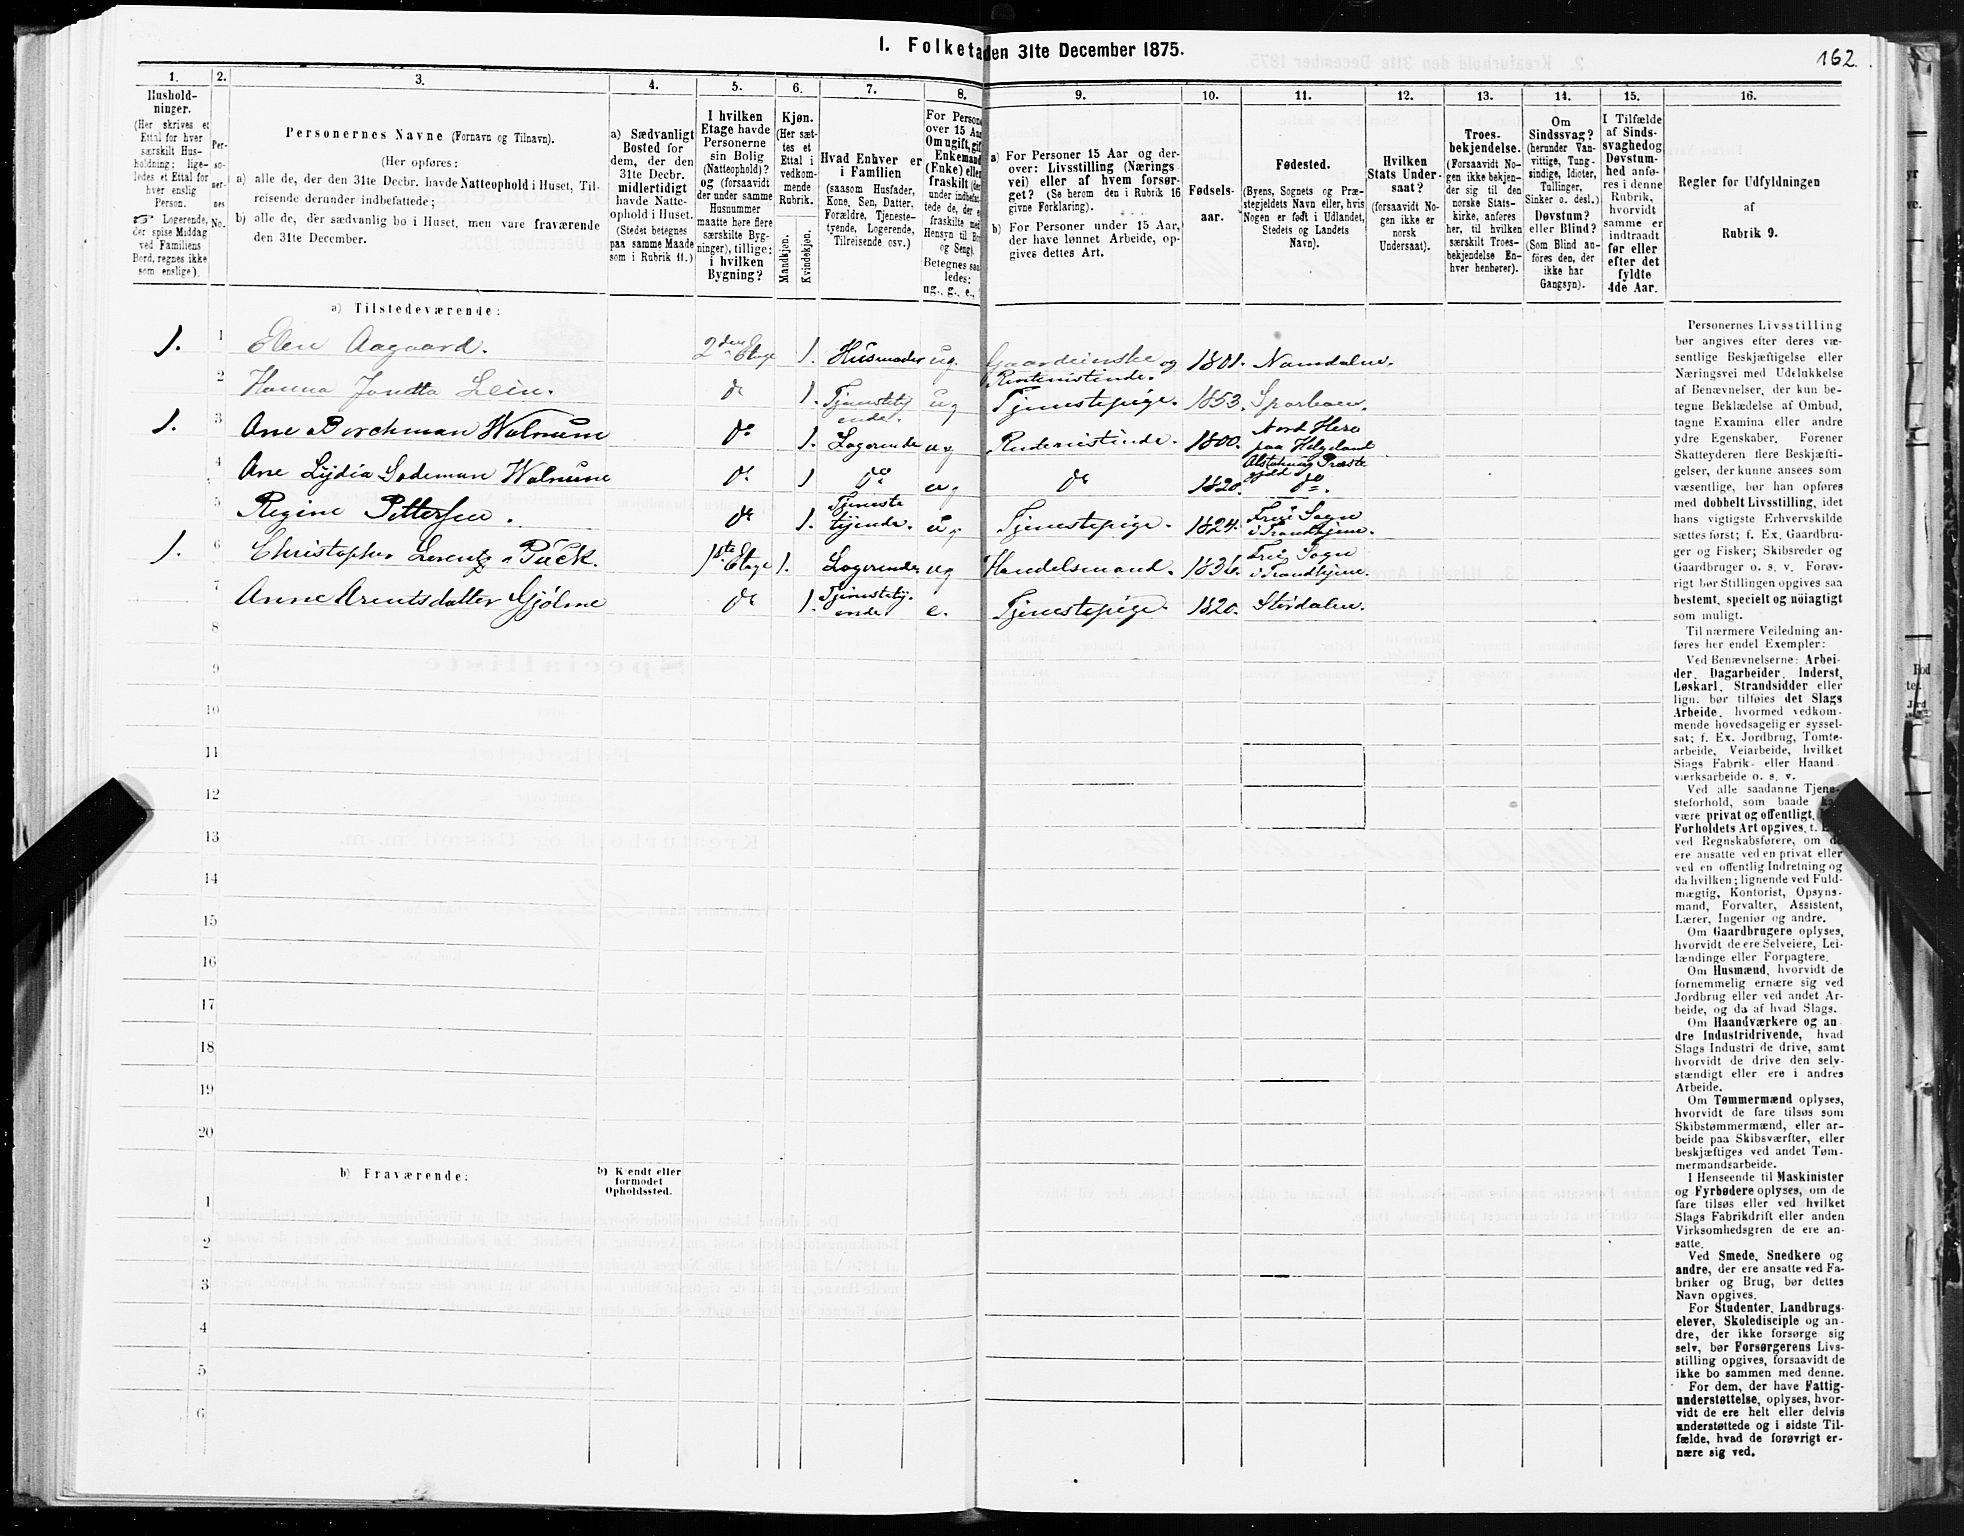 I. Folketa den 31te December 1875.
162
1.
Hushold-
ninger.
(Her skrives et
Ettal for hver
særskilt Hus-
holdning; lige-
ledes et Ettal for
hver enslig
Person.
Logerende,
der spise Middag
ved Familiens
Bord, regnes ikke
som enslige).
2.
Per-
so-
ner-
nes
No.
3.
Personernes Navne (Fornavn og Tilnavn).
(Her opføres:
a) alle de, der den 31te Decbr. havde Natteophold i Huset, Til-
reisende derunder indbefattede;
b) alle de, der sædvanlig bo i Huset, men vare fraværende
den 31te December.
4.
a) Sædvanligt
Bosted for
dem, der den
31te Decbr.
midlertidigt
havde Natte-
ophold i Huset.
(Stedet betegnes
paa samme Maade
som i Rubrik 11.)
5.
I hvilken
Etage havde
Personerne
sin Bolig
(Natteophold)?
og (forsaavidt
der under samme
Husnummer
maatte høre flere
særskilte Byg-
ninger), tillige:
i hvilken
Bygning?
6.
Kjøn.
(Her sæt-
tes et
Ettal i
vedkom-
mende
Rubrik.
Mandkjøn.
Kvindekjøn.
7.
Hvad Enhver er
i Familien
(saasom Husfader,
Kone, Søn, Datter,
Forældre, Tjeneste-
tyende, Logerende,
Tilreisende osv.)
8.
For Persone
over 15 Aar
Om ugift, gif
Enkemand
(Enke) eller
fraskilt (der
under indbefat-
tede de, der e
fraskilte med
Hensyn til Bo
og Seng).
Betegnes saa
ledes:
ug., g., e.,
9.
a) For Personer 15 Aar og der-
over: Livsstilling (Nærings
vei) eller af hvem forsør-
get? (Se herom den i Rubrik 16
givne Forklaring).
b) For Personer under 15 Aar,
der have lønnet Arbeide, op-
gives dettes Art.
10.
Fødsels-
aar.
11.
Fødested.
(Byens, Sognets og Præ-
stegjeldets Navn eller, hvis
Nogen er født i Udlandet,
Stedets og Landets
Navn).
12.
Hvilken
Stats Under-
saat?
(forsaavidt No-
gen ikke er
norsk
Undersaat).
13.
Troes-
bekjendelse.
(Forsaavidt No-
gen ikke bekjen-
der sig til den
norske Stats-
kirke, anføres
her, til hvilken
særskilt Troes-
bekjendelse En-
hver henhører).
14.
Om
Sindssvag?
(herunder Van-
vittige, Tung-
sindige, Idioter,
Tullinger,
Sinker o. desl.)
Døvstum?
eller Blind?
(Som Blind an-
føres den, der
ikke har
Gangsyn).
15.
I Tilfælde
af Sinds-
svaghed og
Døvstum-
hed anfø-
res i denne
Rubrik,
hvorvidt
samme er
indtraadt
før eller
efter det
fyldte
4de Aar.
16.
Regler for Udfyldningen
af
Rubrik 9.
a) Tilstedeværende:
1. 1 Elen Aagaard. 2den Etage 1. Husmoder ug. Gaardeierske og Rentenistinde. 1801. Namdalen.
2 Hanna Jonetta Lein. do 1. Tjenestetyende. ug Tjenestepige. 1853. Sparboen.
1. 3 Ane Borchman Walnum do 1. Logerende ug Rentenistinde. 1800. Nord Herø paa Helgeland
4 Ane Lydia Sodeman Walnum do 1 do ug do 1820. Alstahoug Præstegjeld do.
5 Regine Pettersen. do 1. Tjenestetyende. ug Tjenestepige. 1824. Frue Sogn i Trondhjem.
1. 6 Christopher Lorentz Pück. 1ste Etage 1. Logerende ug Handelsmand. 1836. Frue Sogn i Trondhjem.
7 Anne Arentsdatter Gjølme do 1. Tjenestetyende e. Tjenestepige. 1820. Størdalen.
8
9
10
11
12
13
14
15
16
17
18
19
20
b) Fraværende:
b) Kjendt eller
formodet
Opholdssted.
1
2
3
4
5
6
Personernes Livsstilling
bør angives efter deres væ-
sentlige Beskjæftigelse eller
Næringsvei med Udelukkelse
af Benævnelser, der kun be-
tegne Beklædelse af Ombud,
tagne Examina eller andre
ydre Egenskaber. Forener
Skatteyderen flere Beskjæfti-
gelser, der kunne ansees som
væsentlige, bør han opføres
med dobbelt Livsstilling, idet
hans vigtigste Erhvervskilde
sættes først; f. Ex. Gaardbru-
ger og Fisker; Skibsreder og
Gaardbruger o. s. v. Forøv-
rigt bør Stillingen opgives saa
bestemt, specielt og nöiagtigt
som muligt.
Til nærmere Veiledning an-
føres her endel Exempler:
Ved Benævnelserne: Arbei-
der, Dagarbeider, Inderst,
Løskarl, Strandsidder eller
lign. bør tilføies det Slags
Arbeide, hvormed vedkom-
mende hovedsagelig er syssel-
sat; f. Ex. Jordbrug, Tomte-
arbeide, Veiarbeide, hvilket
Slags Fabrik- eller Haand-
værksarbeide o. s. v.
Ved alle saadanne Tjene-
steforhold, som baade ka
være privat og offentligt,
Forholdets Art opgives, t.
ved Regnskabsførere, om de
ere ansatte ved en privat eller
ved en offentlig Indretning og
da hvilken; lignende ved Fuld-
mægtig, Kontorist, Opsyns-
mand, Forvalter, Assistent,
Lærer, Ingeniør og andre.
Om Gaardbrugere oplyses,
hvorvidt de ere Selveiere, Lei-
lændinge eller Forpagtere.
Om Husmænd, hvorvidt de
fornemmelig ernære sig ved
Jordbrug eller ved andet Ar-
beide, og da af hvad Slags.
Om Haandværkere og an-
dre Industridrivende, hvad
Slags Industri de drive, samt
hvorvidt de drive den selv-
stændigt eller ere i andres
Arbeide.
Om Tømmermænd oplyses,
hvorvidt de fare tilsøs som
Skibstømmermænd, eller ar-
beide paa Skibsværfter, eller
beskjæftiges ved andet Tøm-
mermandsarbeide.
I Henseende til Maskinister
og Fyrbødere oplyses, om de
fare tilsøs eller ved hvilket
Slags Fabrikdrift eller anden
Virksomhedsgren de ere an-
satte.
Ved Smede, Snedkere og
andre, der ere ansatte ved Fa-
briker og Brug, bør dettes
Navn opgives.
For Studenter, Landbrugs-
elever, Skoledisciple og an-
dre, der ikke forsørge sig
selv, bør Forsørgerens Livs-
stilling opgives, forsaavidt de
ikke bo sammen med denne.
For dem, der have Fattig-
understøttelse, oplyses, hvor-
vidt de ere helt eller delvis
understøttede og i sidste Til-
fælde, hvad de forøvrigt er-
nære sig ved.